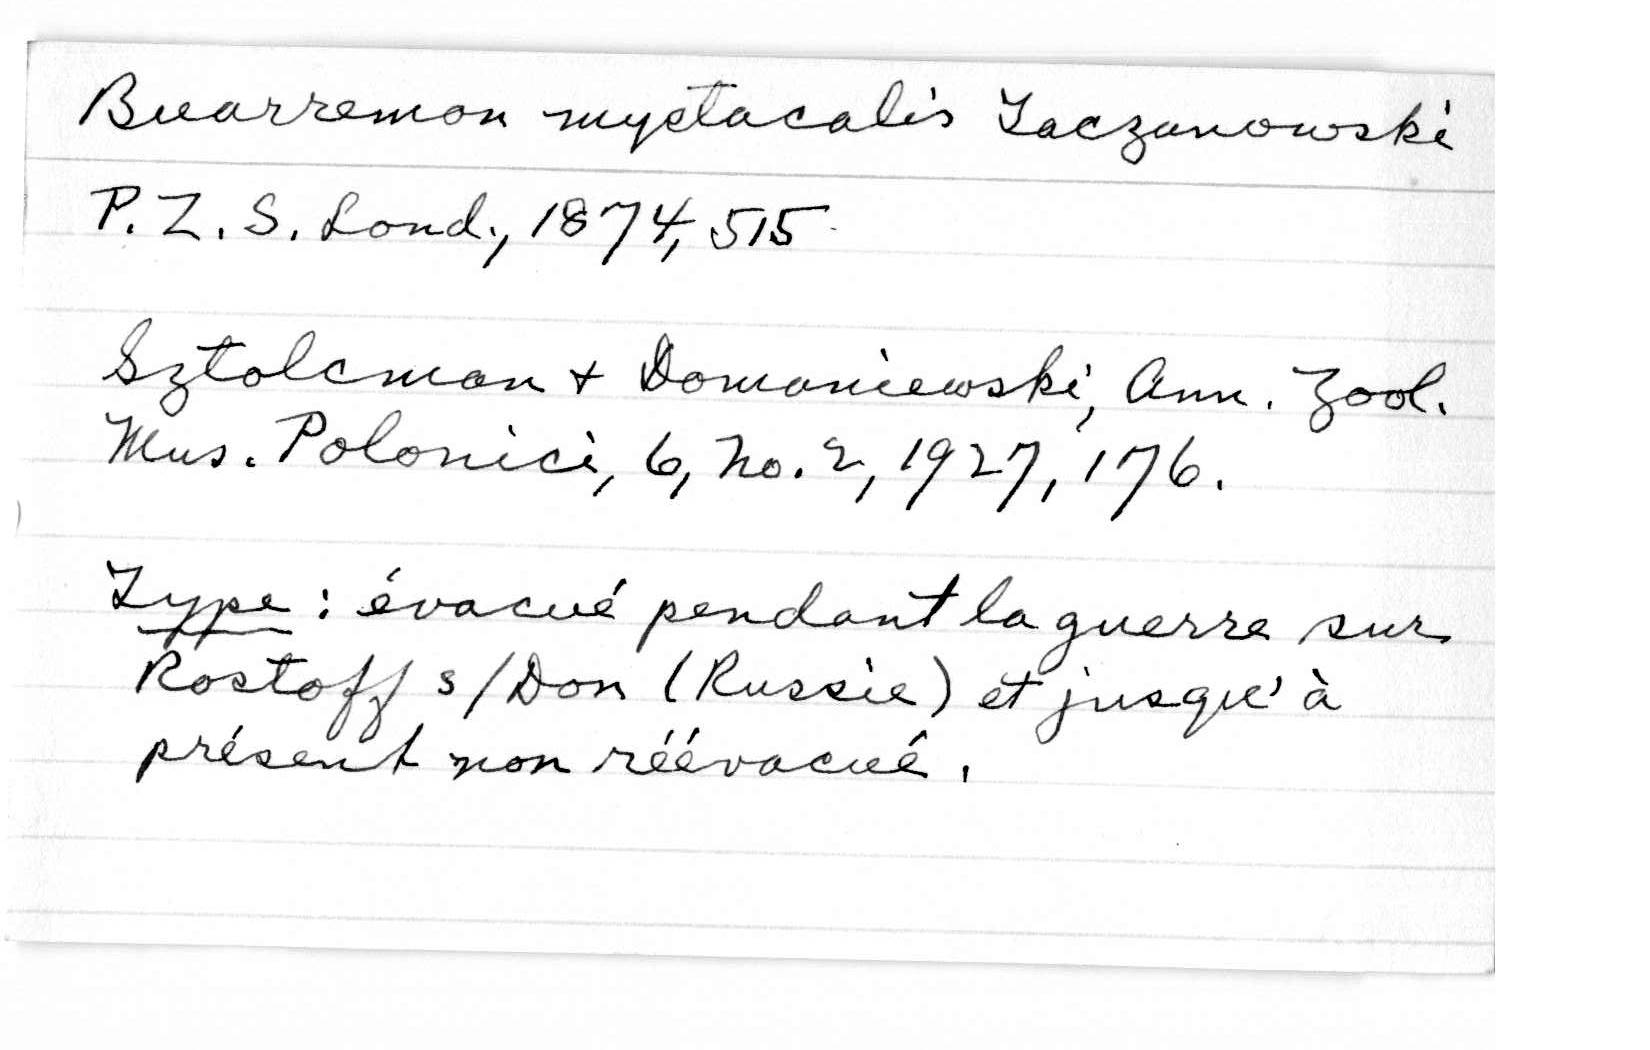 Buarremon mystacalis Taczanowski
P. Z. S. Lond., 1874, 515
Sztolcman + Domaniewski, Ann. Zool.
Mus. Polonici, 6, No. 2, 1927, 176.
Type : évacué pendant la guerre sur
Rostoff s/Don (Russie) et jusqu'à
présent non réévacué.